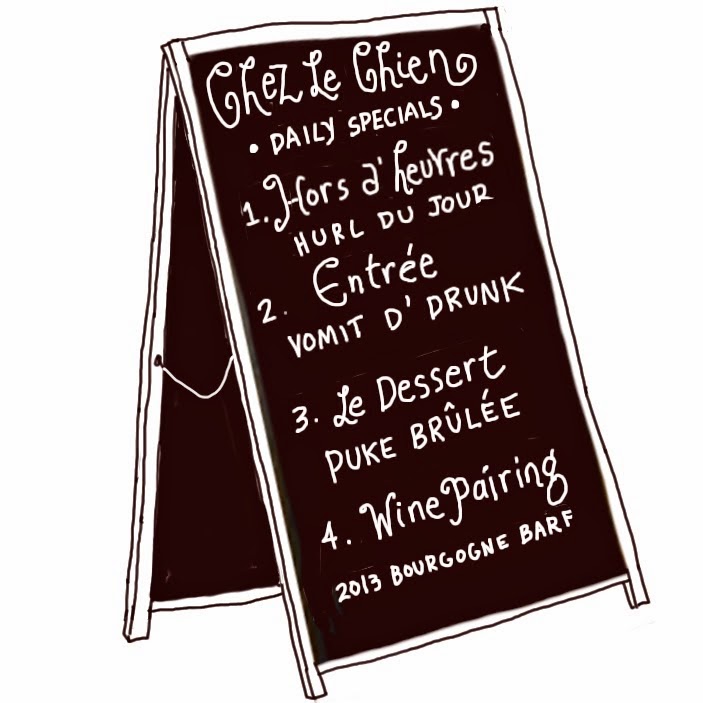 Chez Le Chien
• DAILY SPECIALS •
1. Hors d' heuvres
HURL DU JOUR
2. Entrée
VOMIT D' DRUNK
3. Le Dessert
PUKE BRÛLÉE
4. Wine Pairing
2013 BOURGOGNE BARF